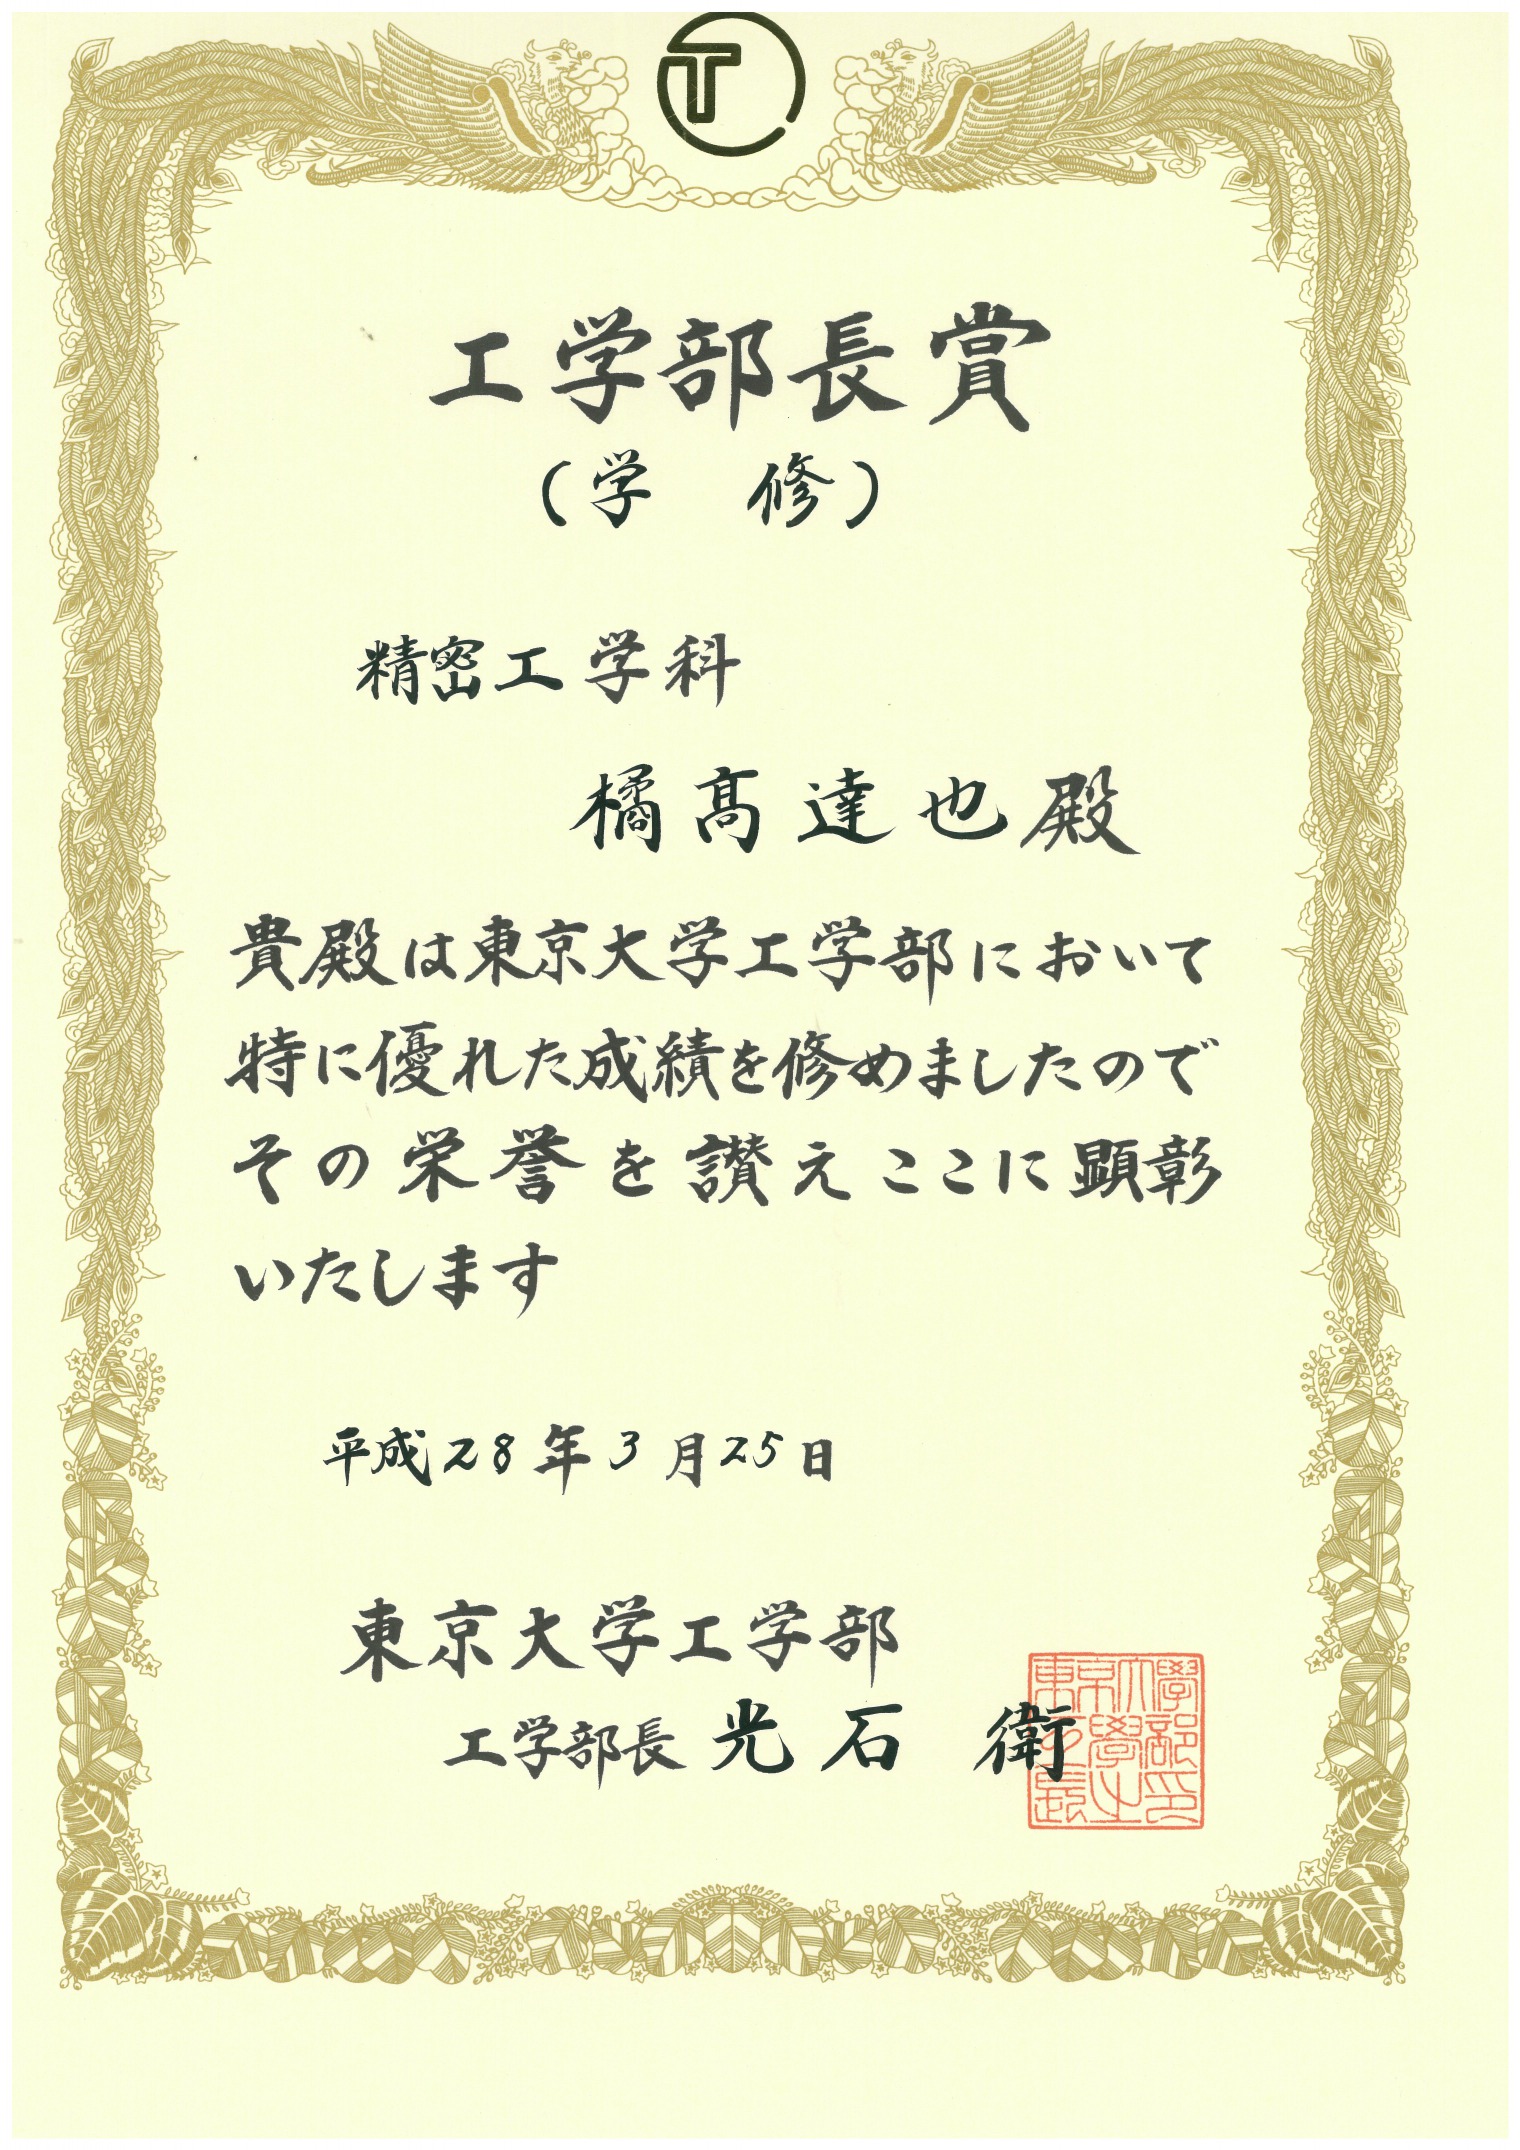 T
工学部長賞
（学　修）
精密工学科
橘髙達也殿
貴殿は東京大学工学部において
特に優れた成績を修めましたので
その栄誉を讃えここに顕彰
いたします
平成28年3月25日
東京大学工学部
工学部長 光石 衛